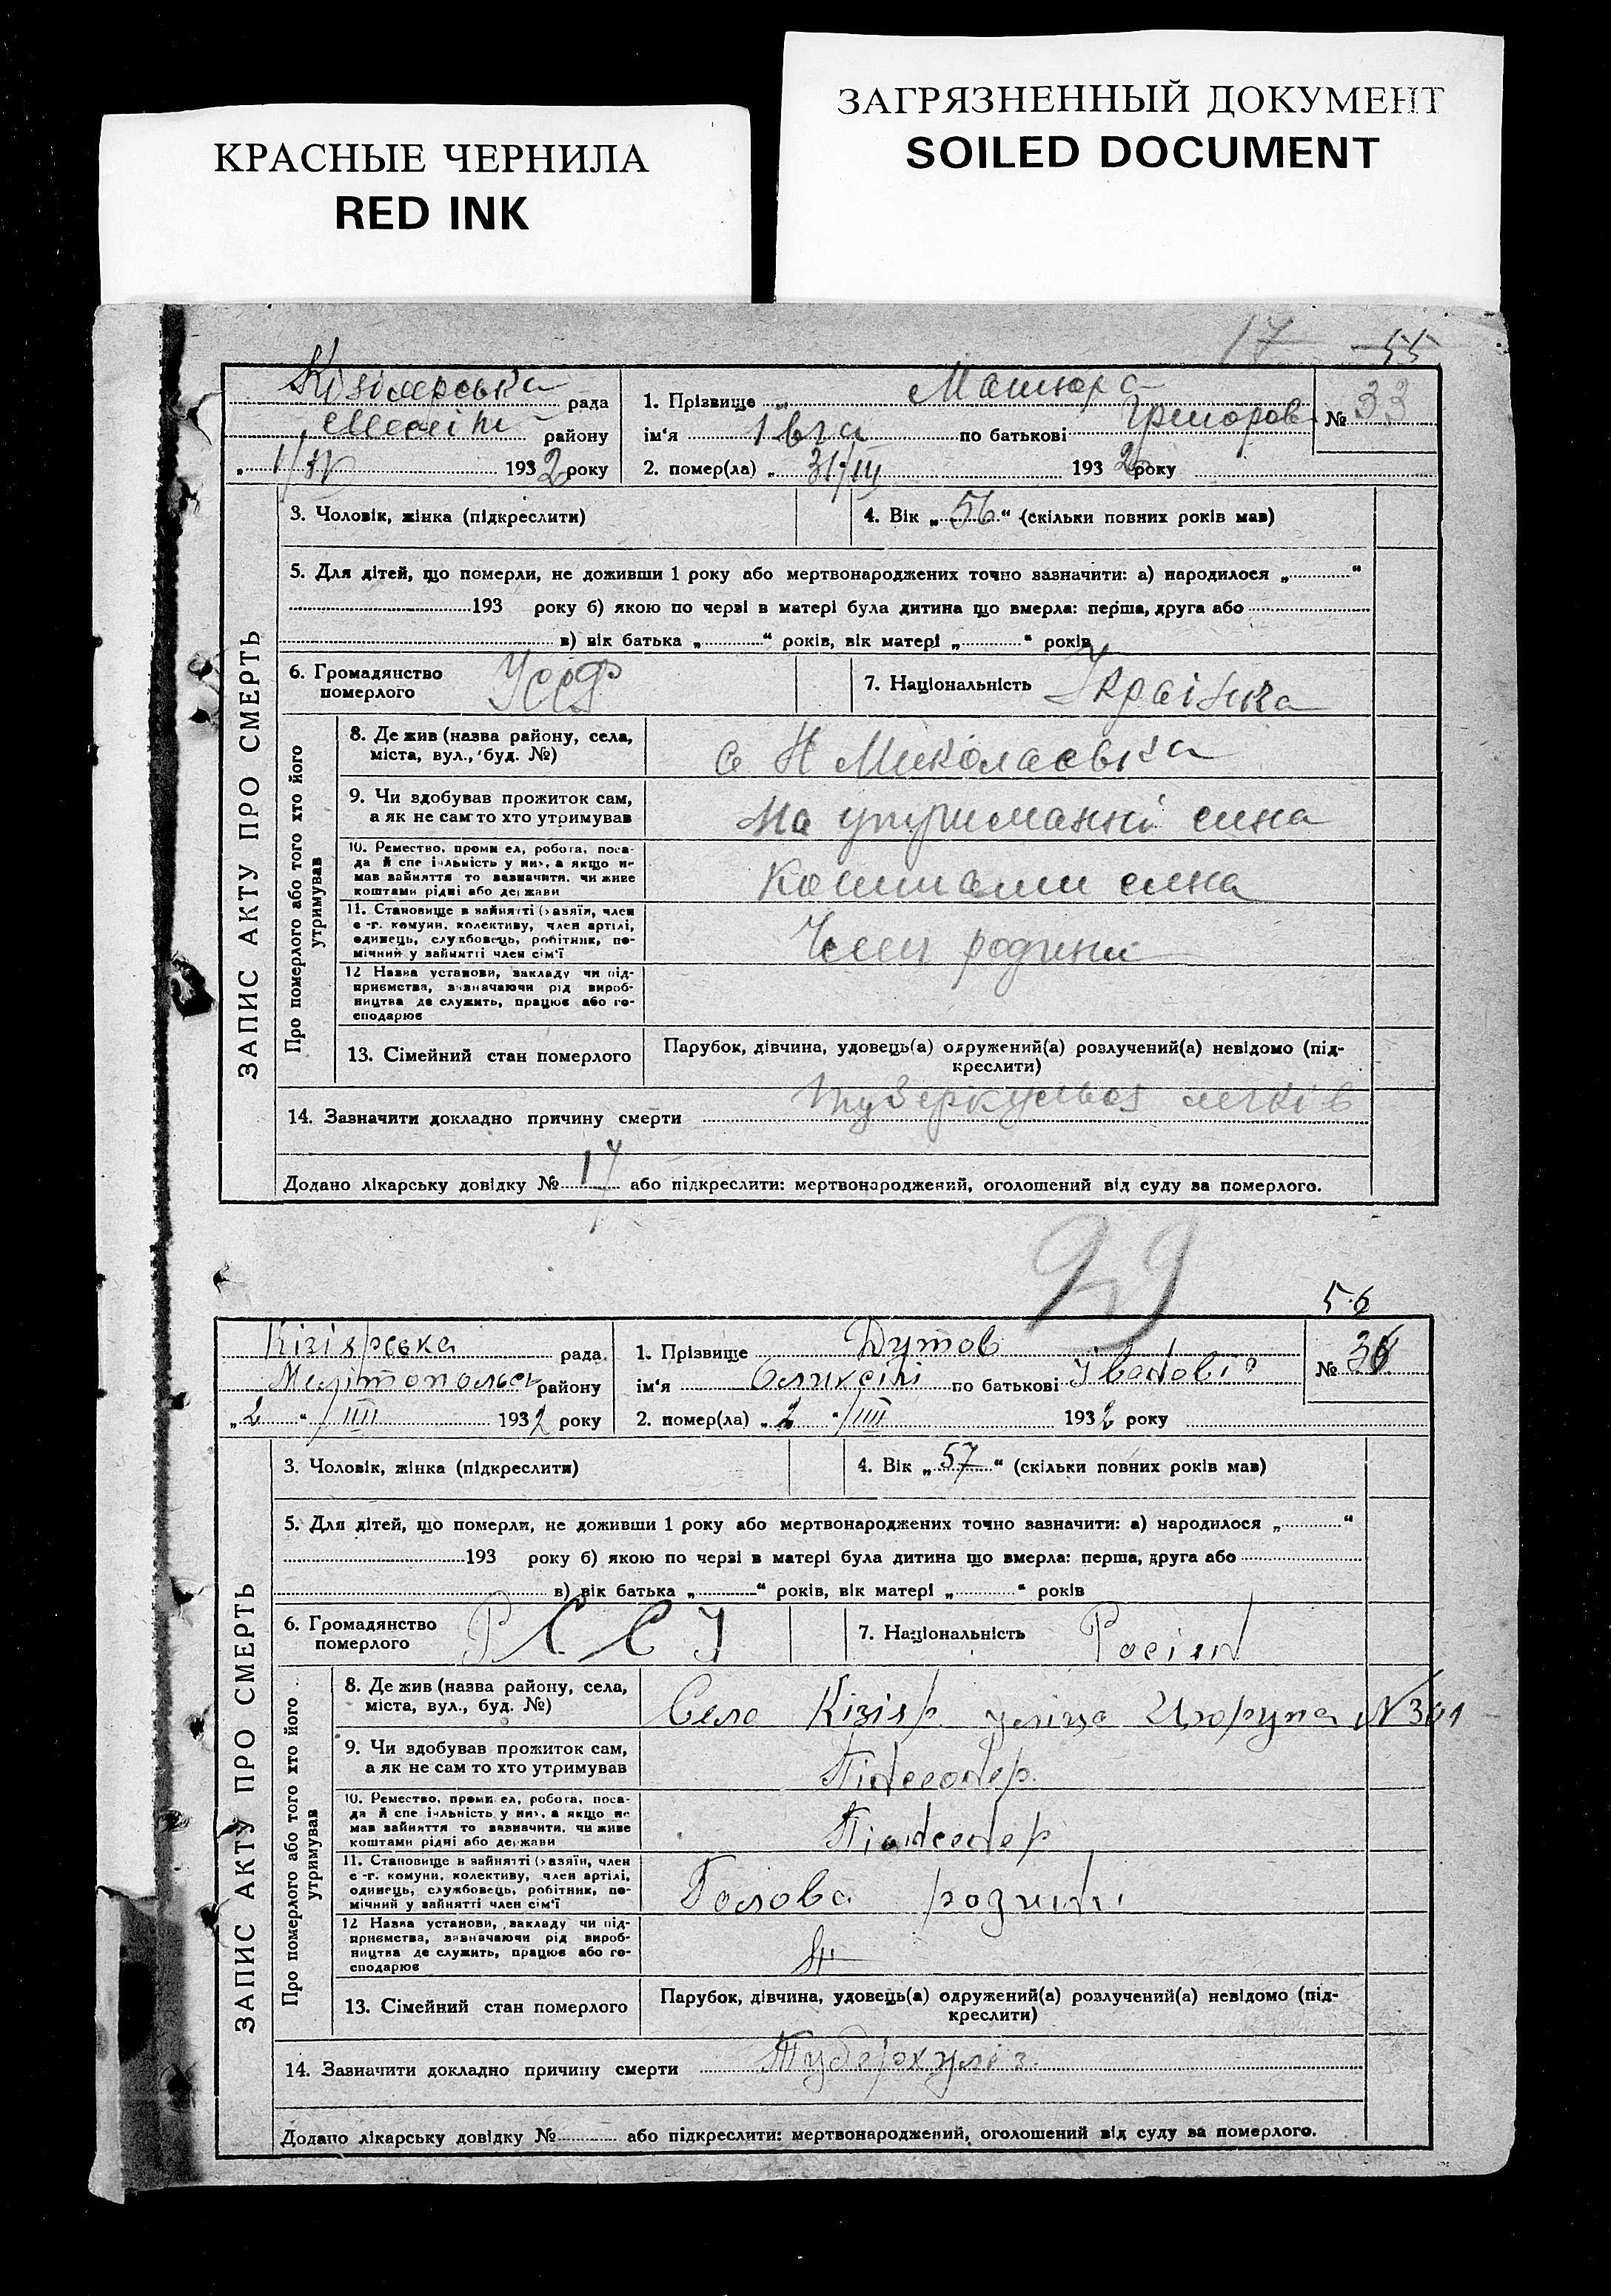 ЗАГРЯЗНЕННЫЙ ДОКУМЕНТ
SOILED DOCUMENT
КРАСНЫЕ ЧЕРНИЛА
RED INK
17 55
Кізіярська рада
Меліт району
1/IV 1932 року
1. Прізвище
ім'я по батькові Григоров
№ 33
2. помер(ла) „ 31/III 1932 року
ЗАПИС АКТУ ПРО СМЕРТЬ
3. Чоловік, жінка (підкреслити)
4. Вік „ 56 “ (скільки повних років мав)
5. Для дітей, що померли, не доживши 1 року або мертвонароджених точно зазначити: а) народилося „ “
193 року б) якою по черзі в матері була дитина що вмерла: перша, друга або
в) вік батька „ “ років, вік матері „ “ років
6. Громадянство
померлого
7. Національність Українка
Про померлого або того хто його
утримував
8. Де жив (назва району, села,
міста, вул., буд. №)
с Н Миколаєвка
9. Чи здобував прожиток сам,
а як не сам то хто утримував
На утриманні сина
10. Ремество, промисел, робота, поса-
да й спеціяльність у них, а якщо не
мав зайняття то зазначити, чи живе
коштами рідні або держави
Коштами сина
11. Становище в зайнятті (хазяїн, член
с.-г. комуни, колективу, член артілі,
одинець, службовець, робітник, по-
мічний у зайнятті член сім'ї
Член родини
12 Назва установи, закладу чи під-
приємства, зазначаючи рід вироб-
ництва де служить, працює або го-
сподарює
13. Сімейний стан померлого
Парубок, дівчина, удовець(а) одружений(а) розлучений(а) невідомо (під-
креслити)
14. Зазначити докладно причину смерти туберкульоз легків
Додано лікарську довідку № 17 або підкреслити: мертвонароджений, оголошений від суду за померлого.
29
56
Кізіярська рада
Мелітопольск району
„ 2 “ /IIII 1932 року
1. Прізвище Дутов
ім'я по батькові Іванові
№
2. помер(ла) „ 2 “ /IIII 1932 року
ЗАПИС АКТУ ПРО СМЕРТЬ
3. Чоловік, жінка (підкреслити)
4. Вік „ 57 “ (скільки повних років мав)
5. Для дітей, що померли, не доживши 1 року або мертвонароджених точно зазначити: а) народилося „ “
193 року б) якою по черзі в матері була дитина що вмерла: перша, друга або
в) вік батька „ “ років, вік матері „ “ років
6. Громадянство
померлого
7. Національність Росіян
Про померлого або того хто його
утримував
8. Де жив (назва району, села,
міста, вул., буд. №)
Село Кізіяр улица №301
9. Чи здобував прожиток сам,
а як не сам то хто утримував
Пінсеонер
10. Ремество, промисел, робота, поса-
да й спеціяльність у них, а якщо не
мав зайняття то зазначити, чи живе
коштами рідні або держави
Пінсеонер
11. Становище в зайнятті (хазяїн, член
с.-г. комуни, колективу, член артілі,
одинець, службовець, робітник, по-
мічний у зайнятті член сім'ї
Голова родини
12 Назва установи, закладу чи під-
приємства, зазначаючи рід вироб-
ництва де служить, працює або го-
сподарює
13. Сімейний стан померлого
Парубок, дівчина, удовець(а) одружений(а) розлучений(а) невідомо (під-
креслити)
14. Зазначити докладно причину смерти Туберкуліз
Додано лікарську довідку № або підкреслити: мертвонароджений, оголошений від суду за померлого.